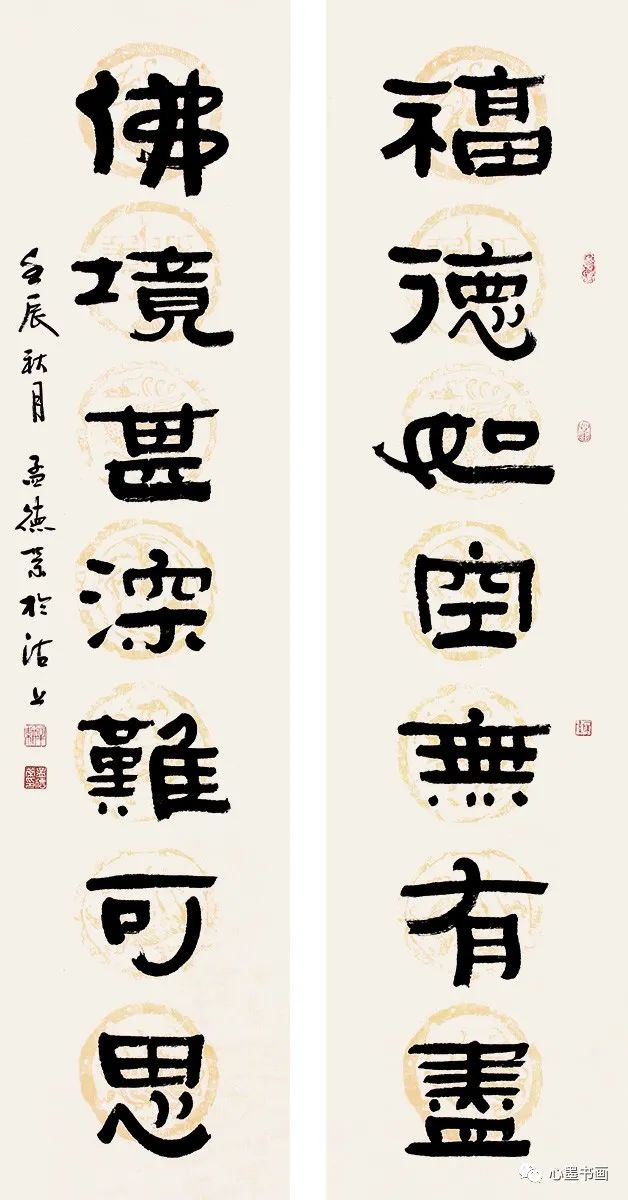 福德如空無有盡
佛境甚深難可思
壬辰秋月 孟德榮於沽上
心墨书画